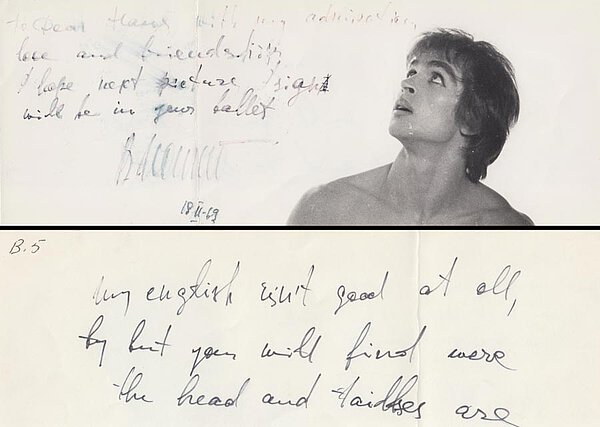 To Dear with my admiration,
love and friendship,
I hope next picture I sign
will be in your ballet
18 II-69
B.5
my english isn't good at all,
by but you will find were
the head and are